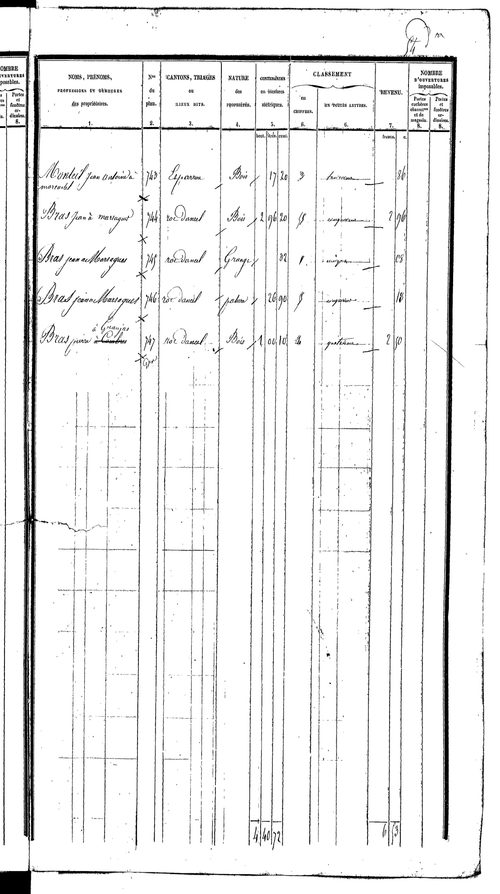 54
OMBRE
OUVERTURES
imposables.
NOMS, PRÉNOMS,
PROFESSIONS ET DEMEURES
des propriétaires.
1.
Nos
du
plan.
2.
CANTONS, TRIAGES
ou
LIEUX DITS.
3.
NATURE
des
propriétés.
4.
CONTENANCES
en mesures
métriques.
5.
CLASSEMENT
en
CHIFFRES.
6.
EN TOUTES LETTRES.
6.
REVENU.
7.
NOMBRE
D'OUVERTURES
imposables.
Portes
cochères
charret
et de
magasin.
8.
Portes
et
fenêtres
or-
dinaires.
8.
hect. ares. cent. francs. c.
Monteil jean antoine à 743 Esparron Bois 17 20 3 troisieme 86
marcoulet
Bras jean à marsagues 744 roc daniel Bois 2 96 20 5 cinquieme 2 96
Bras jean a Marsagues 745 roc daniel Grange 02 1
Bras jean a Marsagues 746 roc daniel pature 26 90 5 cinquieme 18
Bras pierre à 747 roc daniel Bois 1 00 10 quatrieme 2 50
4 40 72 6 53